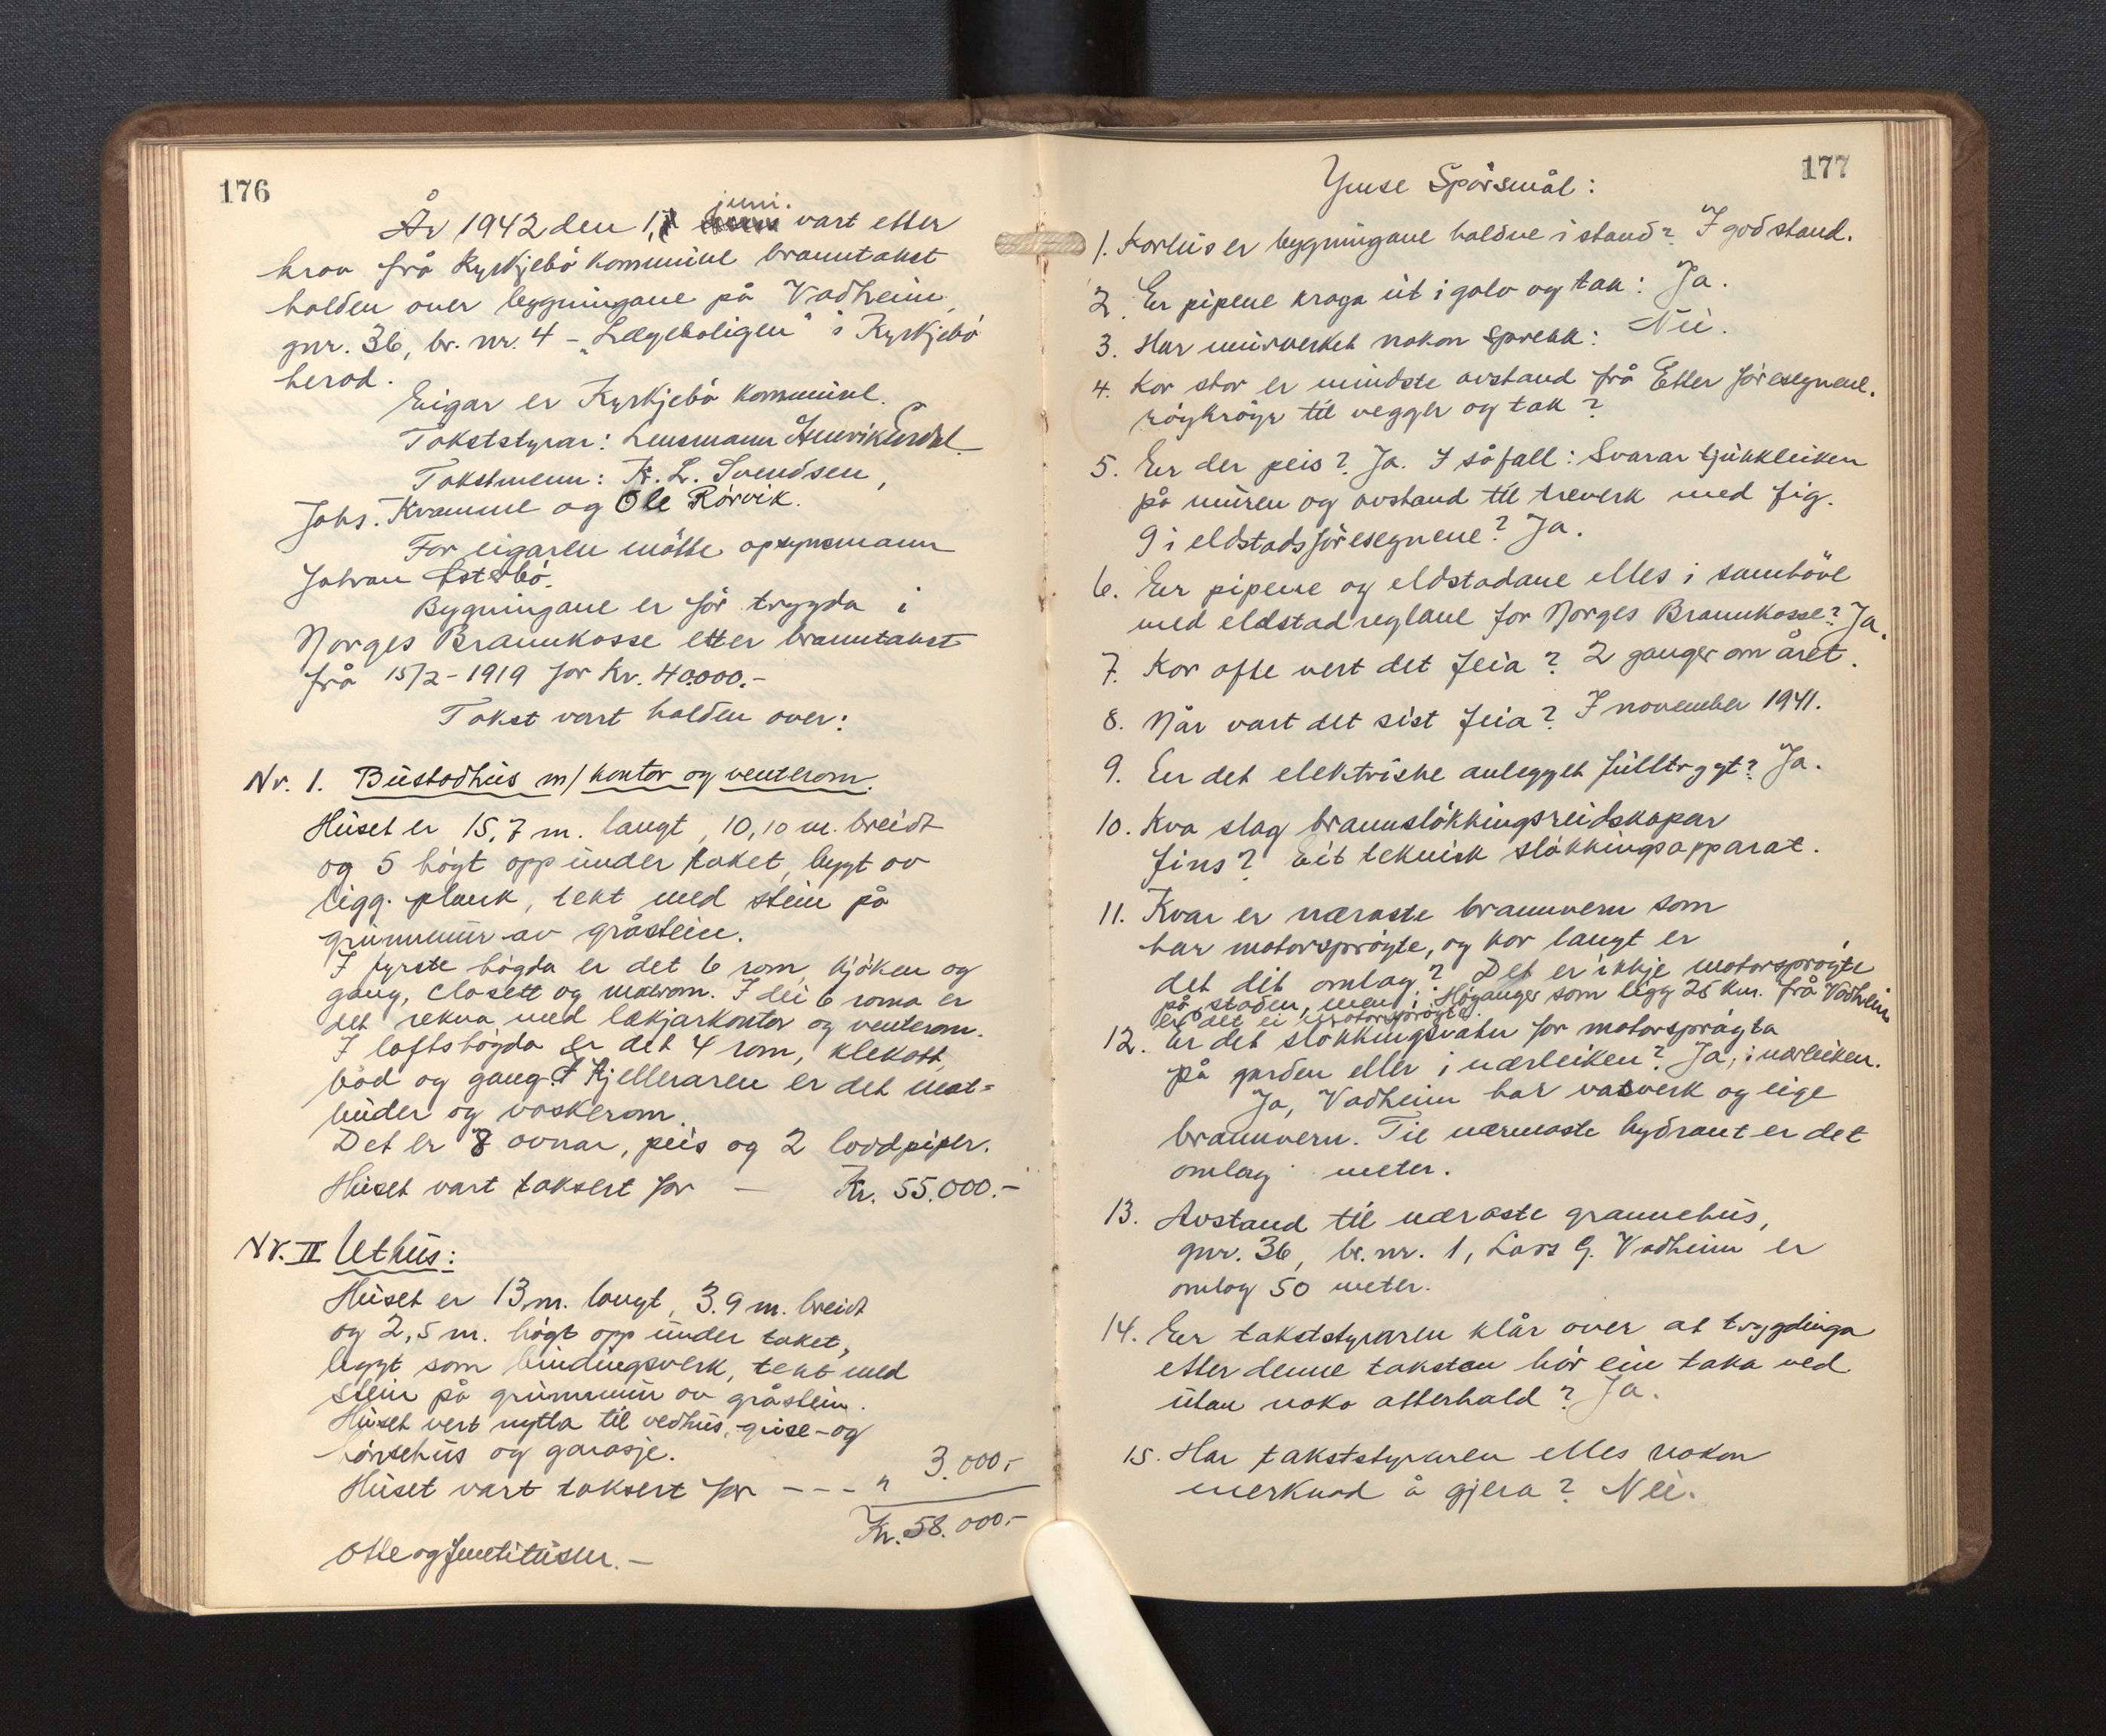 176
År 1942 den 1. juni. vart etter
krav frå Kyrkjebö kommune branntakst
halden over bygningane på Vadheim,
gnr. 36, br. nr. 4 - „Lægeboligen" i Kyrkjebö
herad.
Eigar er Kyrkjebö kommune.
Takststyrar: Lensmann Henrik Erdal.
Takstmenn: K. L. Svendsen,
Johs. Kvamme og Ole Rörvik.
For eigaren mötte opsynsmann
Johan Österbö.
Bygningane er för trygda i
Norges Brannkasse etter branntakst
frå 15/2 - 1919 for kr. 40.000.-
Takst vart halden over:
Nr. 1. Bustadhus m/ kontor og venterom.
Huset er 15,7 m. langt, 10,10 m. breidt
og 5 högt opp under taket, bygt av
ligg. plank, tekt med stein på
grunnmur av gråstein.
I fyrste högda er det 6 rom, kjöken og
gang, closett og matrom. I dei 6 roma er
det rekna med lækjarkontor og venterom.
I loftshögda er det 4 rom, klekott,
bad og gang. I kjelleraren er det mat=
buder og vaskerom.
Det er 8 ovnar, peis og 2 loddpiper.
Huset vart taksert for — Kr. 55.000.-
Nr. II Uthus:
Huset er 13 m. langt, 3.9 m. breidt
og 2,5 m. högt opp under taket,
bygt som bindingsverk, tekt med
stein på grunnmur av gråstein.
Huset vert nytta til vedhus, grise- og
hönsehus og garasje.
Huset vart taksert for - - - " 3.000,-
Kr. 58.000.-
Otte og femtitusen. —
177
Ymse Spörsmål:
1. Korleis er bygningane haldne i stand? I god stand.
2. Er pipene kraga ut i golv og tak: Ja.
3. Har murverket nokon sprekk: Nei.
4. Kor stor er mindste avstand frå Etter föresegnene.
röykröyr til vegger og tak?
5. Er der peis? Ja. I såfall: Svarar tjukkleiken
på muren og avstand til treverk med fig.
9 i eldstadsföresegnene? Ja.
6. Er pipene og eldstadane elles i samhöve
med eldstadreglane for Norges Brannkasse? Ja.
7. Kor ofte vert det feia? 2 ganger om året.
8. Når vart det sist feia? I november 1941.
9. Er det elektriske anlegget fulltrygt? Ja.
10. Kva slag brannslökkingsreidskapar
fins? Eit teknisk slökkingsapparat.
11. Kvar er næraste brannvern som
har motorspröyte, og kor langt er
det dit omlag? Det er ikkje motorspröyte
på staden, men i Höyanger som ligg 25 km. frå Vadheim
er det ei motorspröyte.
12. Er det slökkingsvatn for motorspröyta
på garden eller i nærleiken? Ja, i nærleiken.
Ja, Vadheim har vasverk og eige
brannvern. Til nærmaste hydrant er det
omlag meter.
13. Avstand til næraste grannehus,
gnr. 36, br. nr. 1, Lars G. Vadheim er
omlag 50 meter.
14. Er takststyraren klår over at trygdinga
etter denne taksten bör ein taka ved
utan noko atterhald? Ja.
15. Har takststyraren elles nokon
merknad å gjera? Nei.